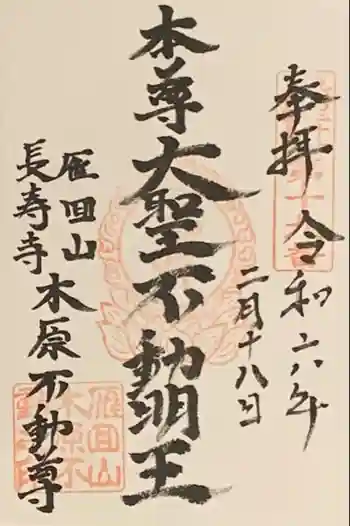 奉拝 令和六年
二月十八日
本尊大聖不動明王
雁回山
長寿寺 木原不動尊